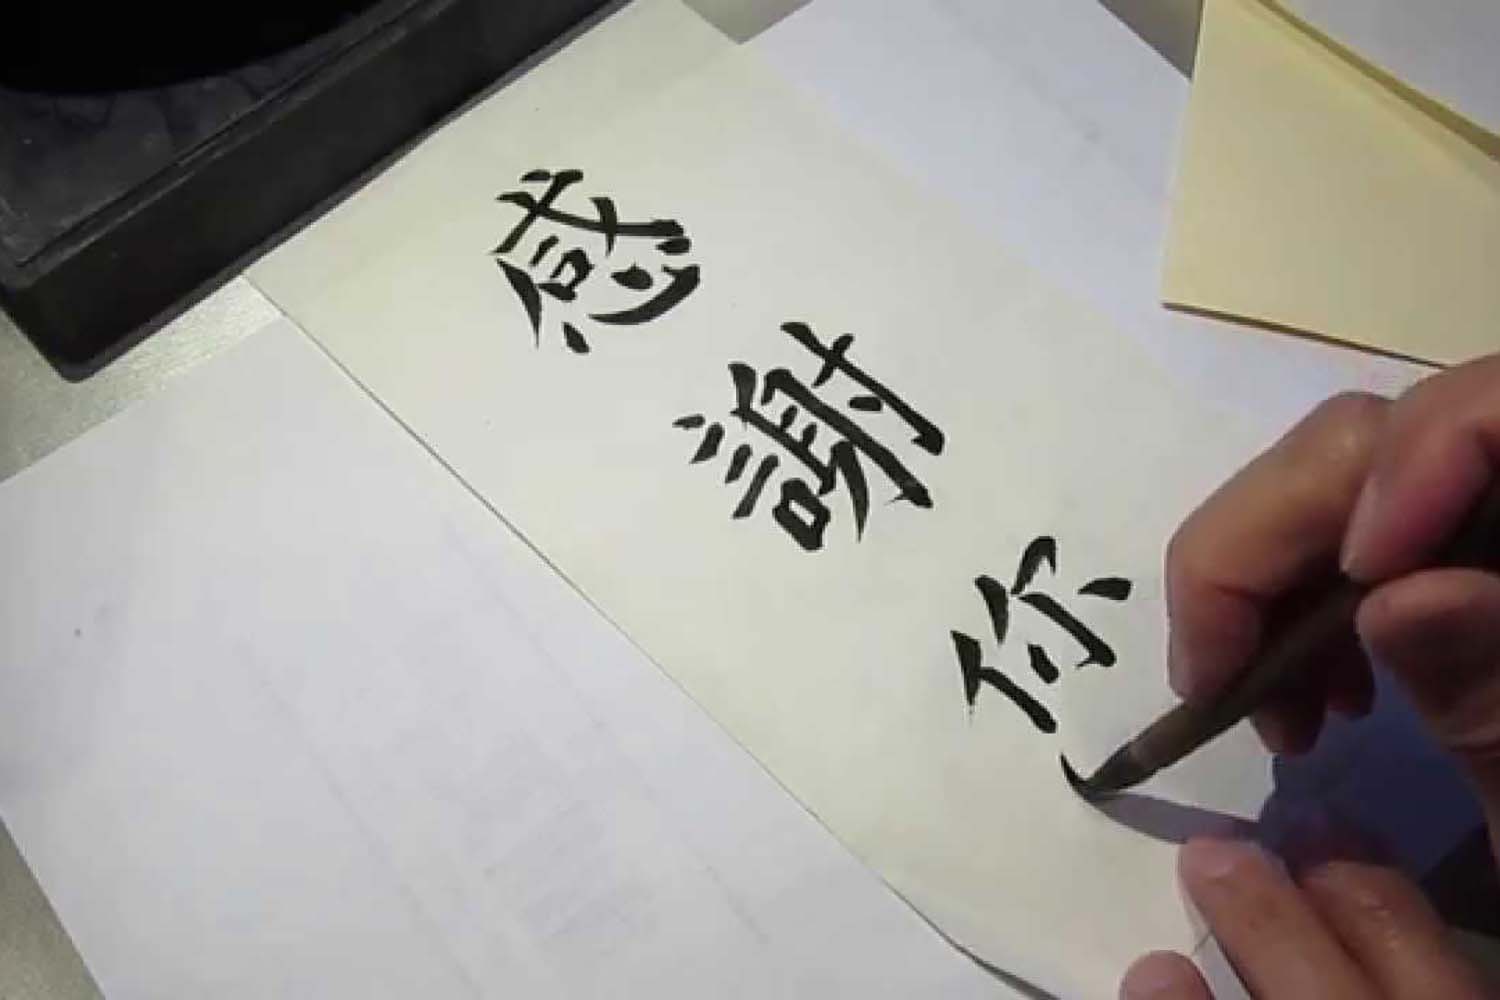 感謝你